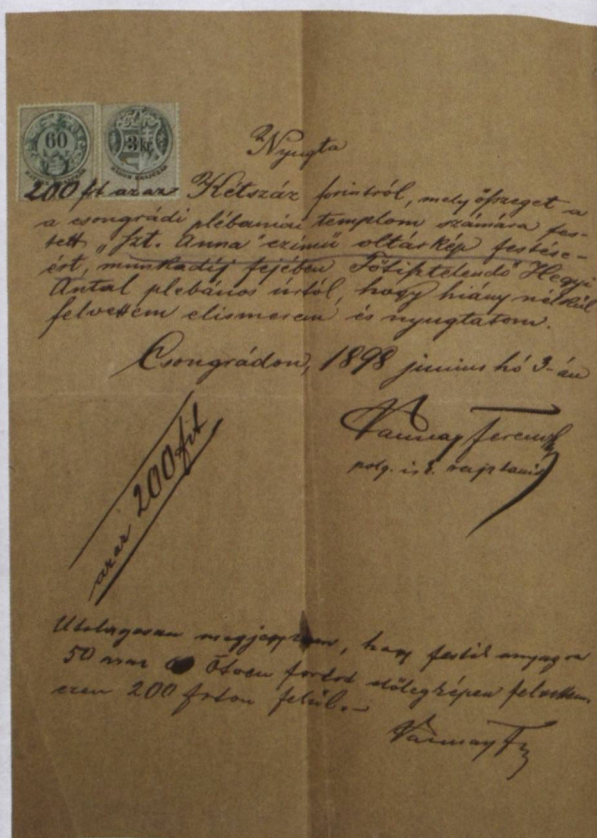 60
3 kr.
Nyugta
200 frt azaz Kétszáz forintról, mely összeget a
a csongrádi plébániai templom számára fes-
tett „Szt. Anna" czimű oltárkép festésé-
ért, munkadíj fejében Főtisztelendő Hegyi
Antal plébános úrtól, hogy hiány nélkül
felvettem elismerem és nyugtatom.
Csongrádon, 1898 junius hó 3-án
Ferencz
polg. isk. rajztanár
azaz 200 frt
Utólagosan megjegyzem, hogy festék anyagra
50 azaz Ötven forintot előlegképen felvettem
ezen 200 frton felül.